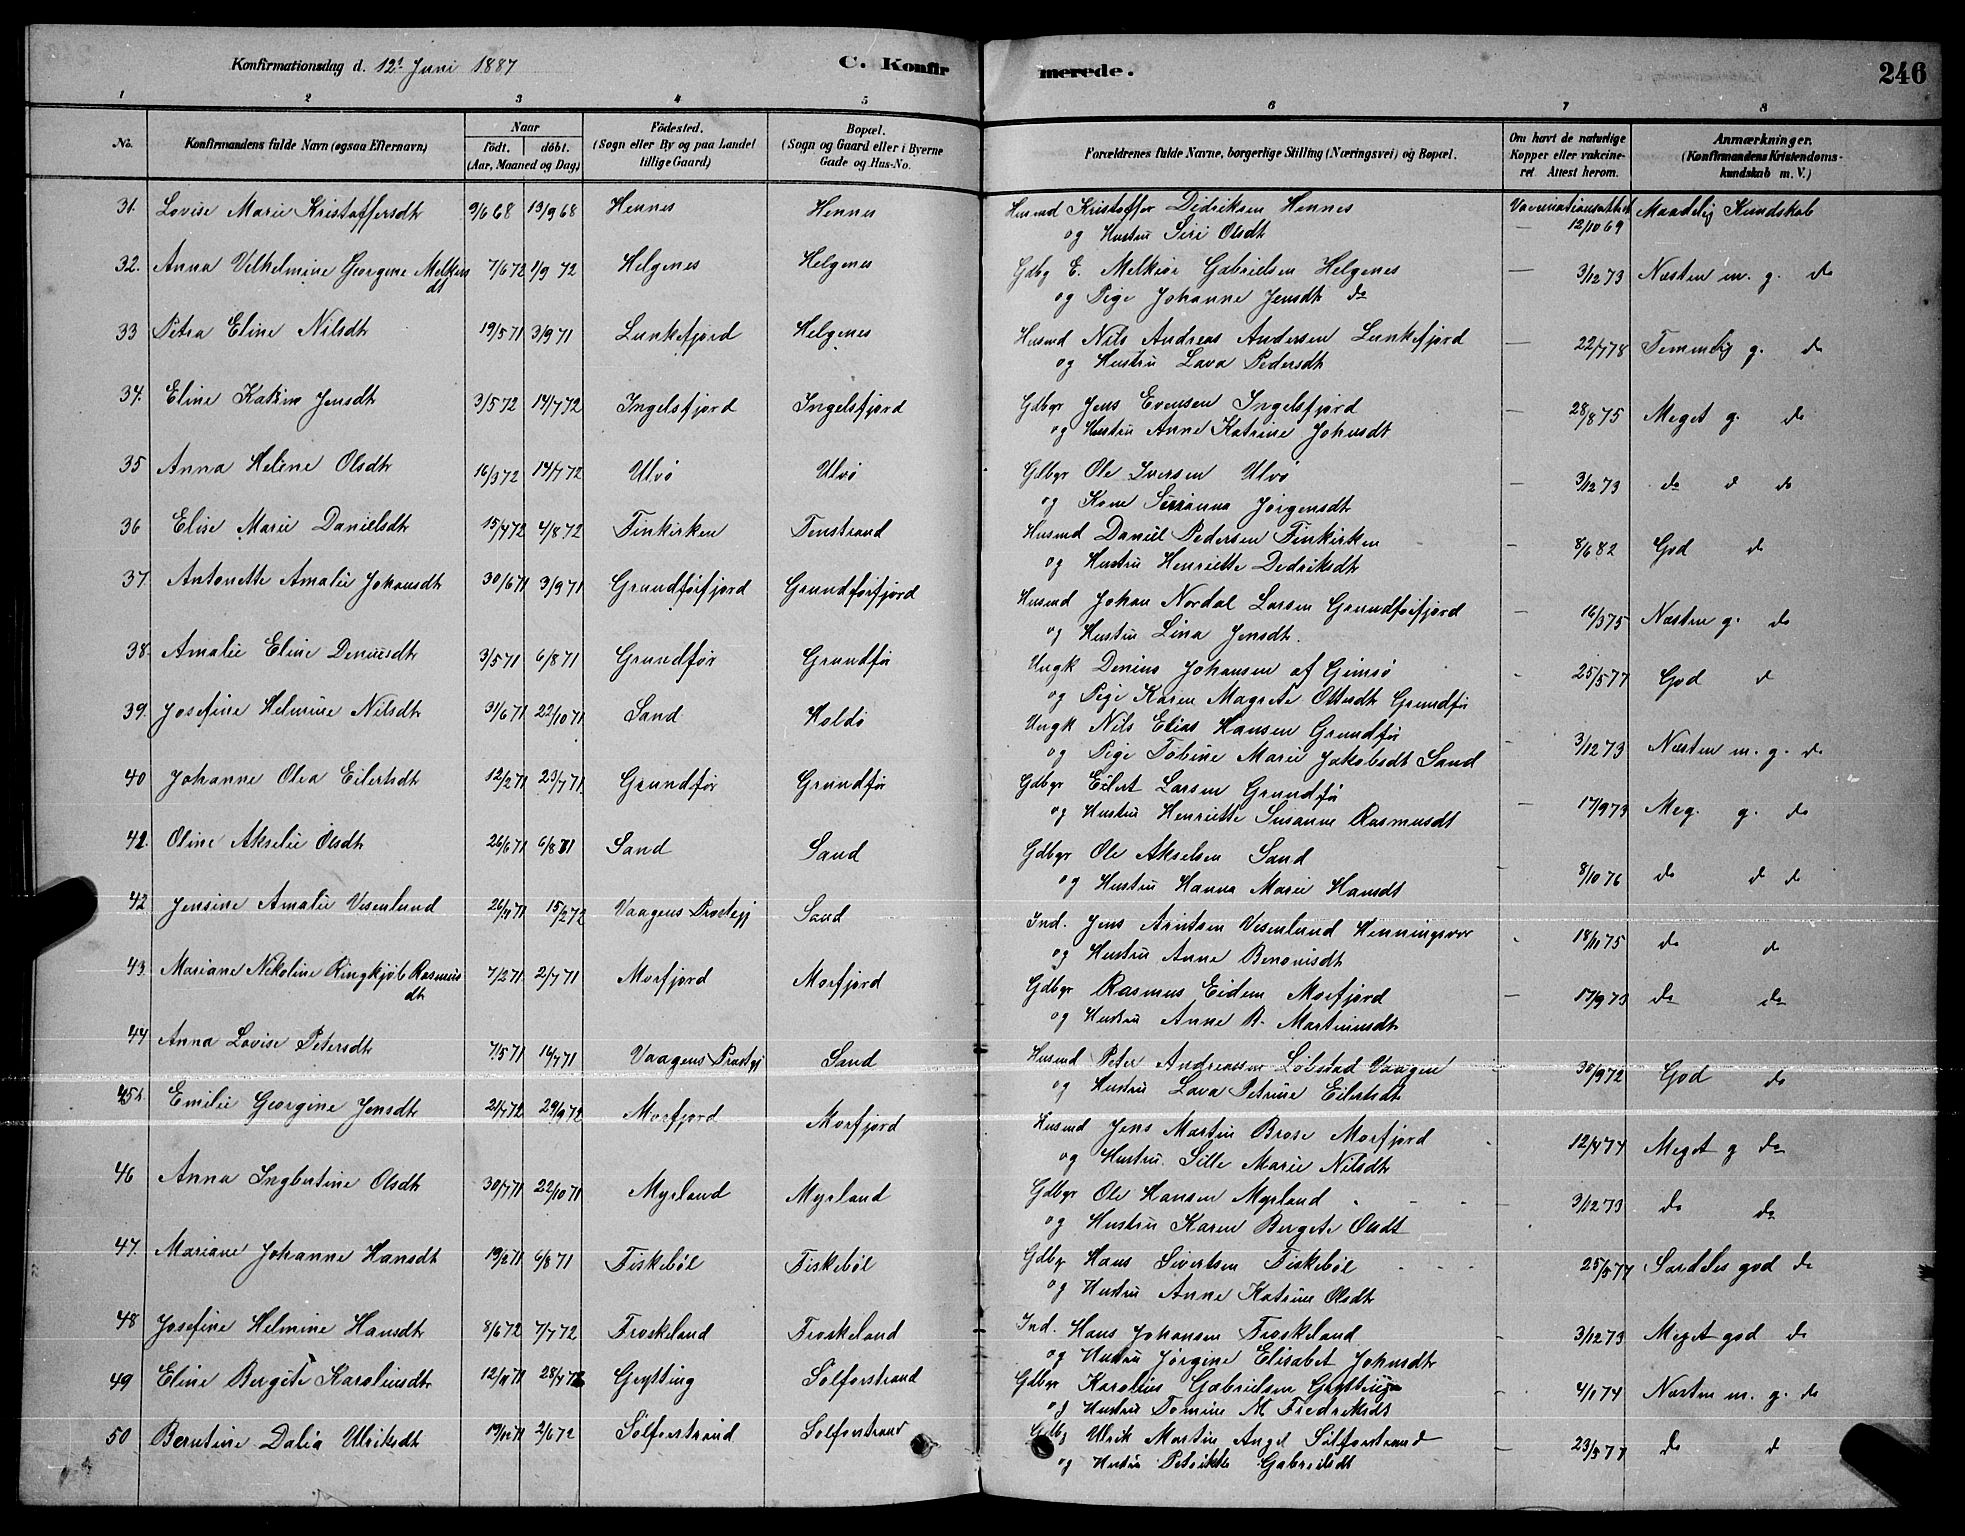 Konfirmationsdag d. 12t Juni 1887
C. Konfirmerede.
246
1 2 3 4 5 6 7 8
No.
Konfirmandens fulde Navn (ogsaa Efternavn)
Naar
født. døbt.
(Aar, Maaned og Dag)
Födested.
(Sogn eller By og paa Landet
tillige Gaard)
Bopæl.
(Sogn og Gaard eller i Byerne
Gade og Hus-No.
Forældrenes fulde Navne, borgerlige Stilling (Næringsvei) og Bopæl.
Om havt de naturlige
Kopper eller vakcine-
ret. Attest herom.
Anmærkninger.
(Konfirmandens Kristendoms-
kundskab m. V.)
31. Lovise Marie Kristoffersdtr 9/6 68 13/9 68 Hennes Hennes Husmd Kristoffer Didriksen Hennes Vaccinationsattest Maadelig Kundskab
og Hustru Siri Olsdtr — 12/10 69
32. Anna Vilhelmine Georgine Melkiors 7/6 72 1/9 72 Helgenes Helgenes Gdbg E. Melkior Gabrielsen Helgenes — 3/12 73 Næsten m. g. do
dt og Pige Johanne Jensdtr do
33 Petra Eline Nilsdtr 19/5 71 3/9 71 Lunkefjord Helgenes Husmd Nils Andreas Andersen Lunkefjord — 22/7 78 Temmelig g. do
og Hustru Lava Pedersdtr
34. Eline Katrine Jensdtr 3/5 72 14/7 72 Ingelsfjord Ingelsfjord Gdbgr Jens Evensen Ingelsfjord — 28/8 75 Meget g. do
og Hustru Anne Katrine Johnsdtr
35 Anna Heline Olsdtr 16/3 72 14/7 72 Ulvö Ulvö Gdbgr Ole Iversen Ulvö — 3/12 73 do d do
og Kone Jörgensdtr
36 Elise Marie Danielsdtr 15/4 72 4/8 72 Finkirken Fenstrand Husmd Daniel Pedersen Finkirken — 8/6 82 God do
og Hustru Henriette Dedriksdtr
37. Antonette Amalie Johansdtr 30/6 71 3/9 71 Grundförfjord Grundförfjord Husmd Johan Nordal Larsen Grundförfjord — 16/3 75 Næsten g. do
og Hustru Lina Jensdtr.
38. Amalie Eline Deniusdtr 3/5 71 6/8 71 Grundför Grundför Ungk Denius Johansen af Gimsö - 25/5 77 God d
og Pige Karen Magrete Ottesdtr Grundför
39. Josefine Helmine Nilsdtr 21/6 71 22/10 71 Sand Holdö Ungk Nils Elias Hansen Grundför - 3/12 73 Næsten m. g. do
og Pige Tobine Marie Jakobsdtr Sand
40 Johanne Olea Eilertsdtr 12/2 71 23/7 71 Grundför Grundför Gdbgr Eilert Larsen Grundför — 17/9 73 Meg. g. do
og Hustru Henriette Susanne Rasmusdt
41. Oline Akselie Olsdtr 26/6 71 6/8 71 Sand Sand Gdbgr Ole Akselsen Sand 8/10 76 do d do
og Hustru Hanna Marie Hansdt
42 Jensine Amalie Visenlund 26/11 71 15/2 72 Vaagens Prestegj Sand Ind. Jens Arntsen Visenlund Henningsvær 18/11 75 do d
og Hustru Anne Benonisdt
43. Mariane Nikoline Ringkjöb Rasmus 7/2 71 2/7 71 Morfjord Morfjord Gdbgr Rasmus Eidem Morfjord — 17/9 73 do do
dtr og Hustru Anne B. Martinusdt
44 Anna Lovise Petersdtr 7/5 71 16/7 71 Vaagens Prestgj Sand Husmd Peter Andreassen Löbstad Vaagen 30/9 72 God do
og Hustru Lava Petrine Eilertsdt
45. Emilie Georgine Jensdtr 2/7 72 29/9 72 Morfjord Morfjord Husmd Jens Martin Brose Morfjord - 12/4 74 Meget g do
og Hustru Sille Marie Nilsdtr
46 Anna Ingbertine Olsdtr 30/7 71 22/10 71 Myrland Myrland Gdbgr Ole Hansen Myrland - - - 3/12 73 do do
og Hustru Karen Bergete Olsdt
47. Mariane Johanne Hansdt 19/2 71 6/8 71 Fiskeböl Fiskeböl Gdbg Hans Sivertsen Fiskeböl - - - 25/5 77 Særdeles god do
og Hustru Anne Katrine Olsdtr
48 Josefine Helmine Hansdtr 8/6 72 7/7 72 Froskeland Froskeland Ind. Hans Johansen Froskeland - 3/12 73 Meget god do
og Hustru Jörgine Elisabet Johnsdtr
49 Eline Bergite Karoliusdtr 12/11 71 28/7 72 Grytting Sölforstrand Gdbgr Karolius Gabrielsen Grytting - 4/1 74 Næsten m. g. do
og Hustru Tomine M Fredriksdt
50 Berntine Dalia Ulriksdt 19/12 71 2/6 72 Sölforstrand Sölforstrand Gdbg Ulrik Martin Angel Sölforstrand — 23/5 77 do d
og Hustru Gabrielsdt